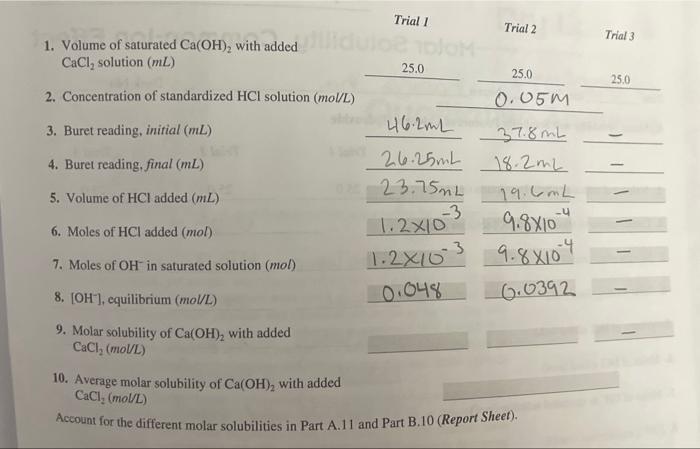 Trial 1 Trial 2 Trial 3
1. Volume of saturated Ca(OH)₂ with added
CaCl₂ solution (mL) 25.0 25.0 25.0
2. Concentration of standardized HCl solution (mol/L) 0.05M
3. Buret reading, initial (mL) 46.2mL 37.8mL –
4. Buret reading, final (mL) 26.25mL 18.2mL –
5. Volume of HCl added (mL) 23.75mL 19.6mL –
6. Moles of HCl added (mol) 1.2x10⁻³ 9.8x10⁻⁴ –
7. Moles of OH⁻ in saturated solution (mol) 1.2x10⁻³ 9.8x10⁻⁴ –
8. [OH⁻], equilibrium (mol/L) 0.048 0.0392 –
9. Molar solubility of Ca(OH)₂ with added
CaCl₂ (mol/L) –
10. Average molar solubility of Ca(OH)₂ with added
CaCl₂ (mol/L)
Account for the different molar solubilities in Part A.11 and Part B.10 (Report Sheet).